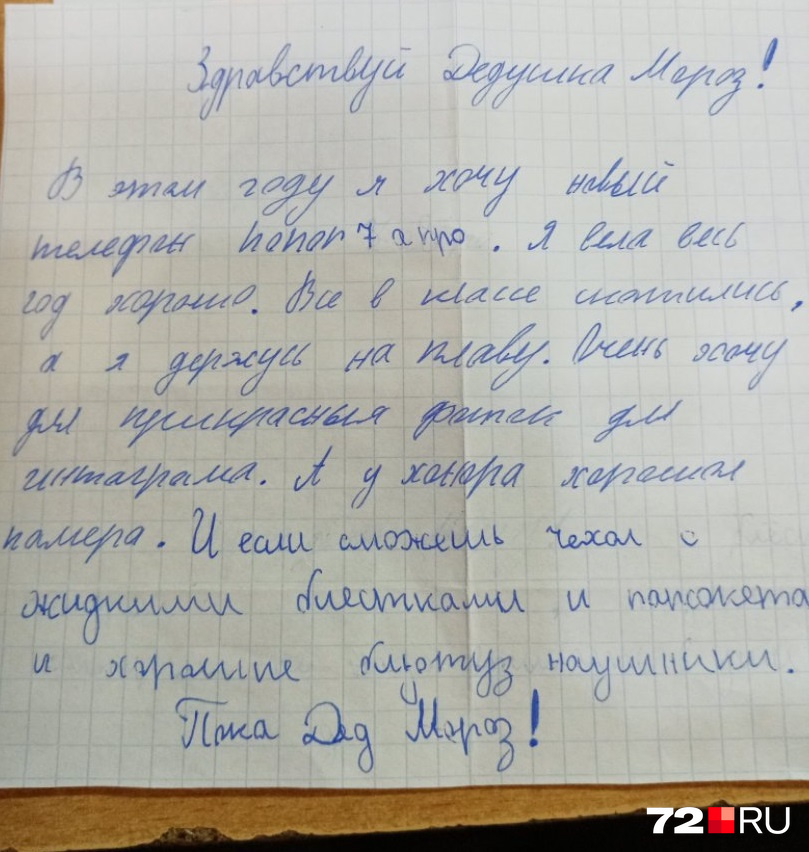 Здравствуй Дедушка Мороз!
В этом году я хочу новый
телефон honor 7 а про. Я вела весь
год хорошо. Все в классе скотились,
а я держусь на плаву. Очень хочу
для прикрасных фоток для
интаграма. А у хонора хорошая
камера. И если сможешь чехол с
жидкими блестками и попсокета
и хорошие блютуз наушники.
Пжа Дед Мороз!
72.RU